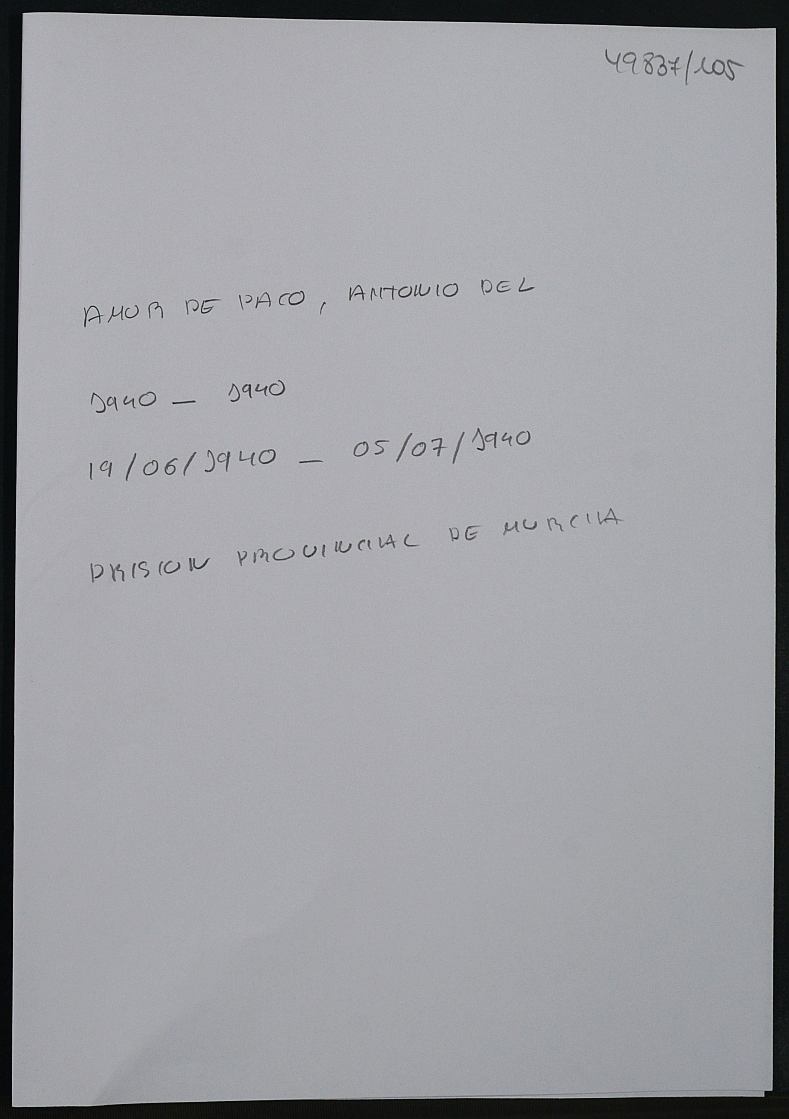 49837/105
AMOR DE PACO, ANTONIO DEL
1940 - 1940
19/06/1940 - 05/07/1940
PRISION PROVINCIAL DE MURCIA